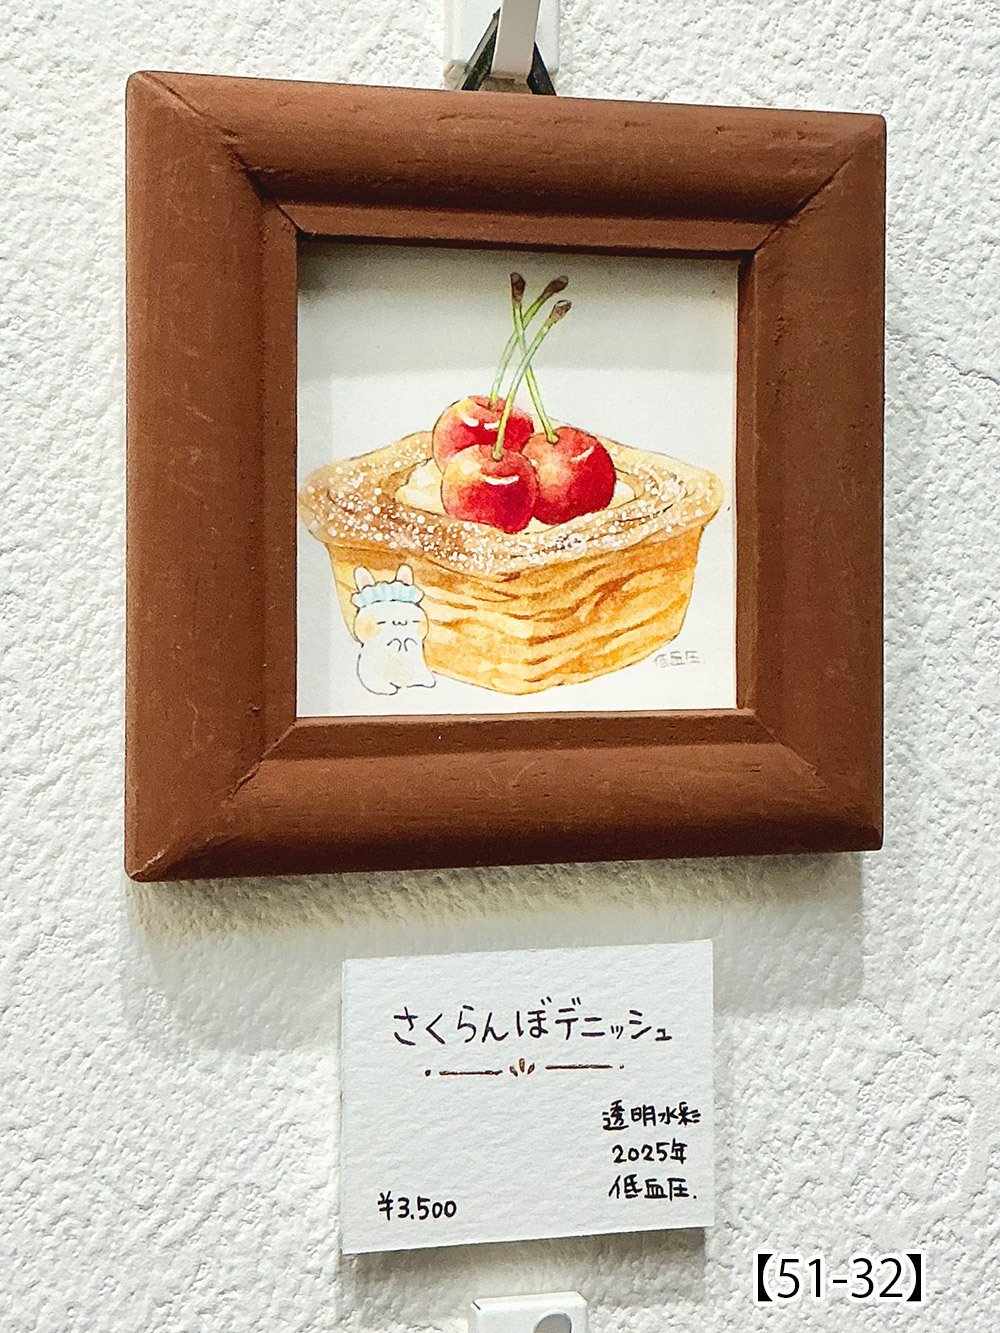 低血圧.
さくらんぼデニッシュ
透明水彩
2025年
低血圧.
¥3,500
【51-32】